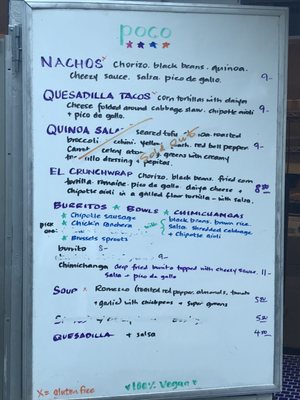 poco
NACHOS x chorizo. black beans. quinoa.
cheezy sauce. salsa. pico de gallo. 9-
QUESADILLA TACOS x corn tortillas with daiya
cheese folded around cabbage slaw. chipotle aioli 9-
+ pico de gallo.
QUINOA SALA seared tofu roasted
broccoli black red bell pepper 9-
Carrot celery greens with creamy
dressing + pepitas.
Sold Out
EL CRUNCHWRAP chorizo. black beans. fried corn
tortilla. romaine. pico de gallo. daiya cheese + 8.50
chipotle aioli in a grilled flour tortilla - with salsa.
BURRITOS * BOWLS * CHIMICHANGAS
* Chipotle sausage black beans. brown rice.
pick one: * Chick'n with salsa. shredded cabbage
+ chipotle aioli
* Brussels sprouts
burrito 8-
9-
Chimichanga deep fried burrito topped with cheezy sauce. 11-
salsa + pico de gallo
SOUP x Romesco (roasted red pepper. almonds, tomato
+ garlic) with chickpeas + super greens 5.00
5.00
QUESADILLA + salsa 4.50
X = gluten free
♥ 100% Vegan ♥